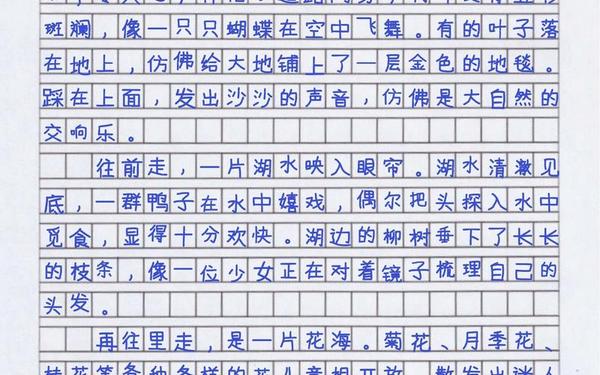 斑斓，像一只只蝴蝶在空中飞舞。有的叶子落
在地上，仿佛给大地铺上了一层金色的地毯。
踩在上面，发出沙沙的声音，仿佛是大自然的
交响乐。
往前走，一片湖水映入眼帘。湖水清澈见
底，一群鸭子在水中嬉戏，偶尔把头探入水中
觅食，显得十分欢快。湖边的柳树垂下了长长
的枝条，像一位少女正在对着镜子梳理自己的
头发。
再往里走，是一片花海。菊花、月季花、
桂花等各种各样的花儿竞相开放，散发出迷人